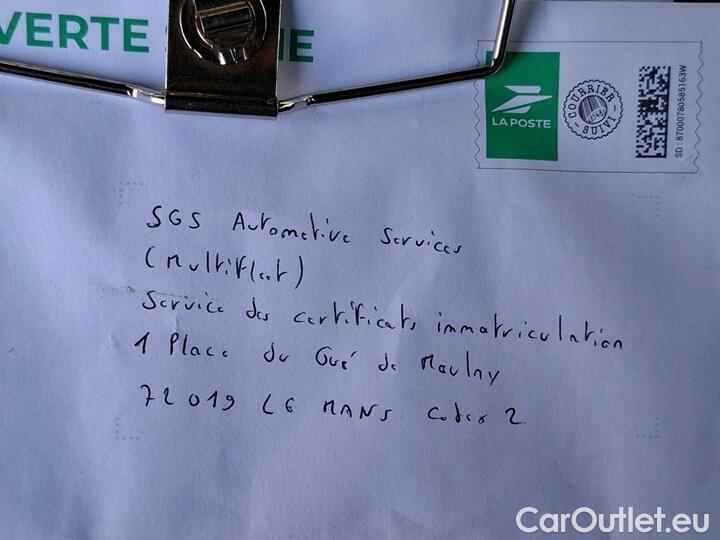 VERTE
LA POSTE
COURRIER
SUIVI
SD : 87000780585163W
SGS Automotive Services
(Multifleet)
Service des certificats immatriculation
1 Place du Gué de Maulny
72019 LE MANS Cedex 2
CarOutlet.eu